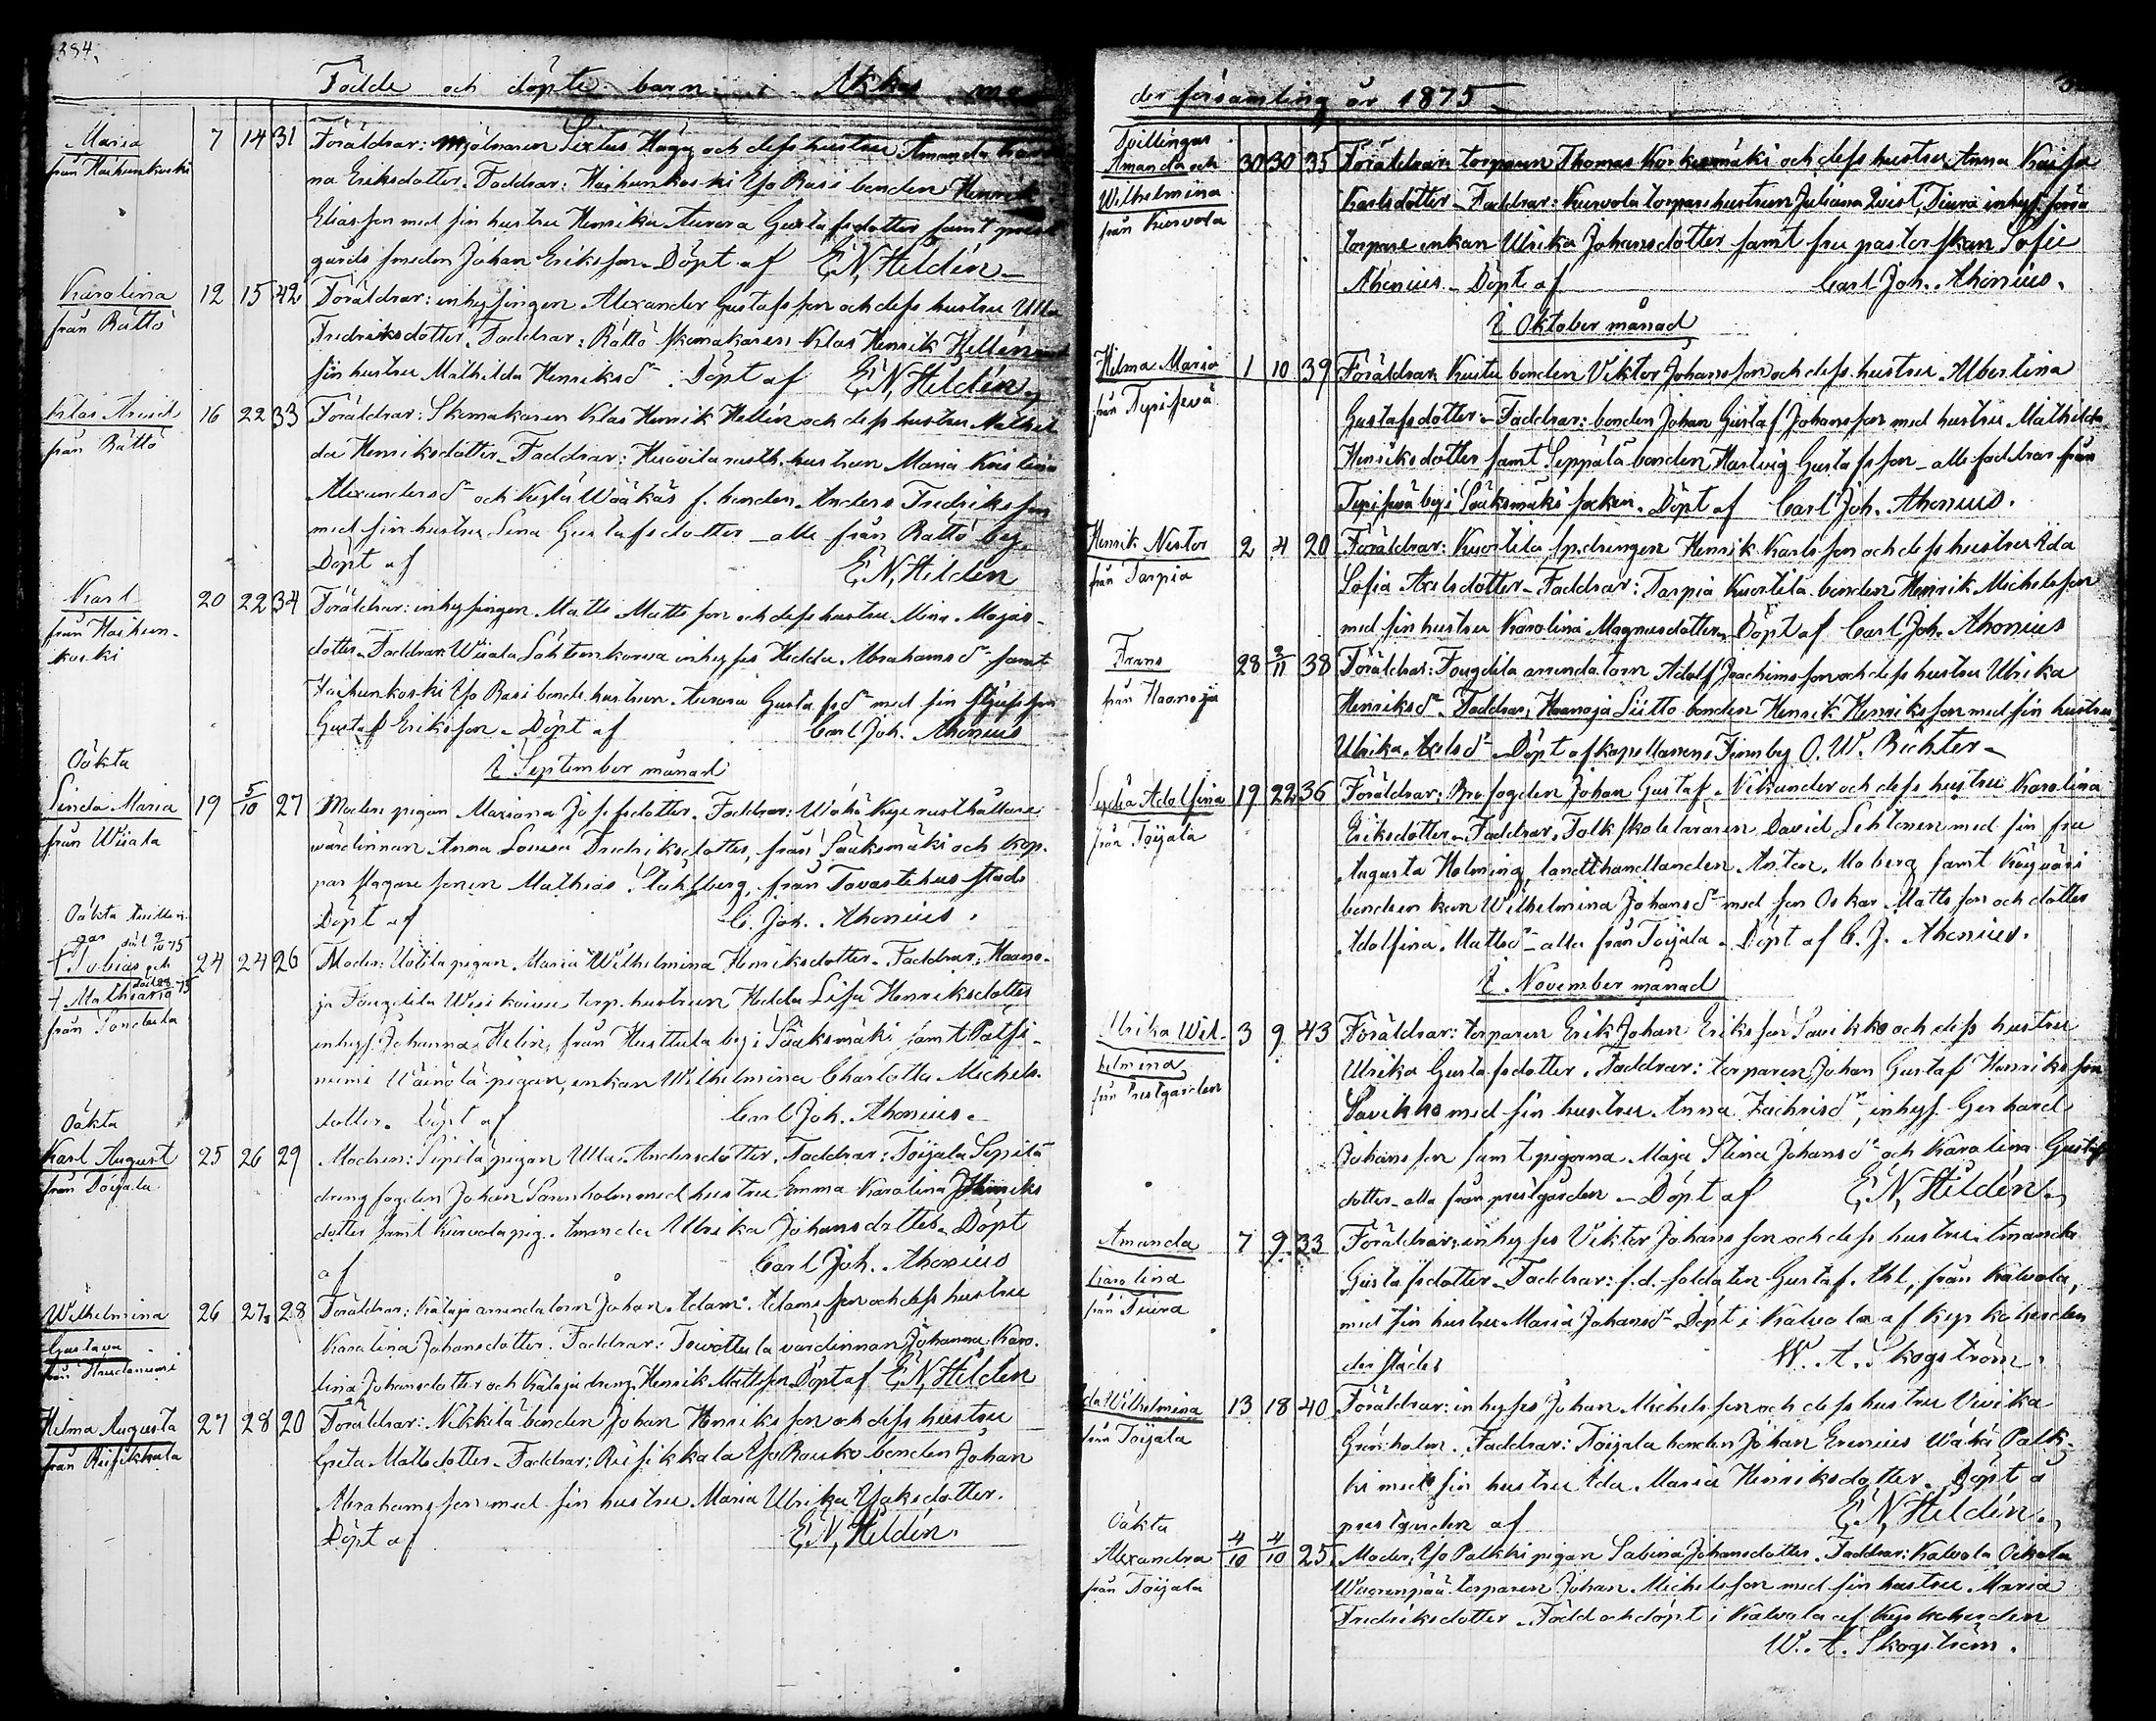 384.
Födde och döpte barn i Akkas mo
Maria 7 14 31 Föräldrar: Mjölnaren Sixtus Hägg och dess hustru Amanda Karo
från Haihunkoski na Eriksdotter. Faddrar: Haihunkoski Yso Rasi bonden Henrik
Eliasson med sin hustru Henrika Aurora Gustafsdotter samt prest
gårds smeden Johan Eriksson. Döpt af E, N, Heldén
Karolina 12 15 42 Föräldrar: inhysingen Alexander Gustafsson och dess hustru Ulla
från Rättö Fredriksdotter. Faddrar: Rättö skomakaren Klas Henrik Hellén med
sin hustru Mathilda Henriksdr. Döpt af E, N, Heldén,
Klas Arvid 16 22 33 Föräldrar: Skomakaren Klas Henrik Hellén och dess hustru Mathil
från Rättö da Henriksdotter. Faddrar: rusth. hustrun Maria Kristina
Alexandersdr och Kylä Wääkäs f. bonden Anders Fredriksson
med sin hustru Lena Gustafsdotter alle från Rättö by.
Döpt af E, N, Heldén
Karl 20 22 34 Föräldrar: inhysingen Matts Mattsson och dess hustru Mina Majas-
från Haihun- dotter. Faddrar: Wiiala inhyses Hedda Abrahamsdr samt
koski Haihunkoski Yso Rasi bonde hustrun Aurora Gustafsdr med sin styfson
Gustaf Eriksson. Döpt af Carl Joh. Ahonius
I September månad
Oäkta
Linda Maria 19 5/10 27 Moder: pigan Mariana Josefsdotter. Faddrar: Wähä Kyi rusthållare
från Wiiala wärdinnan Anna Lovisa Fredriksdotter, från Sääksmäki och kop-
par slagare sonen Mathias Ståhlberg, från Tavastehus stad.
Döpt af C. Joh. Ahonius.
Oäkta tvillin-
gar död 9/10 75
† Tobias och 24 24 26 Moder: Uotila pigan Maria Wilhelmina Henriksdotter. Faddrar: Haano-
† Mathias död 75 ja Fougdila torp. hustrun Hedda Lisa Henriksdotter
från Sontula inhys. Johanna Helin, från Huittula by i Sääksmäki samt
niemi Wäinölä pigan, enkan Wilhelmina Charlotta Michels-
dotter. Döpt af Carl Joh. Ahonius.
Oäkta
Karl August 25 26 29 Modren: Sipilä pigan Ulla Andersdotter. Faddrar: Toijala Sipilä
från Toijala dreng fogden Johan med hustru Emma Karolina Henriks
dotter samt Kurvola pig. Amanda Ulrika Johansdotter. Döpt
af Carl Joh. Ahonius
Wilhelmina 26 27 28 Föräldrar: Kataja arrendatorn Johan Adam Adamsson och dess hustru
Gustava Karolina Johansdotter. Faddrar: wärdinnan Johanna Karo-
från lina Johansdotter och Kataja dreng. Henrik Mattsson Döpt af E, N, Heldén
Hilma Augusta 27 28 20 Föräldrar: Nikkilä bonden Johan Henriksson och dess hustru
från Riisikkala Greta Mattsdotter. Faddrar: Riisikkala Yso Rouko bonden Johan
Abrahamsson med sin hustru Maria Ulrika Isaksdotter.
Döpt af E, N, Heldén.
der församling år 1875
Tvillingar
Amanda och 30 30 35 Föräldrar: torparen Thomas Korkeemäki och dess hustru Anna Kaisa
Wilhelmina Karlsdotter. Faddrar: Kurvola torpare hustrun Juliana Qvist, Tiura inhys. förra
från Kurvola torpare enkan Ulrika Johansdotter samt fru pastorskan Sofie
Ahonius. Döpt af Carl Joh. Ahonius.
I Oktober månad
Hilma Maria 1 10 39 Föräldrar: bonden Viktor Johansson och dess hustru Albertina
från Tyrisevä Gustafsdotter. Faddrar: bonden Johan Gustaf Johansson med hustru Mathilda
Henriksdotter samt Seppälä bonden Hartvig Gustafsson alle faddrar från
Tyrisevä by i Sääksmäki socken. Döpt af Carl Joh. Ahonius.
Henrik Nestor 2 4 20 Föräldrar: Kuortila sp. drengen Henrik Karlsson och dess hustru Ida
från Tarpia Sofia Axelsdotter. Faddrar: Tarpia Kuortila bonden Henrik Michelsson
med sin hustru Karolina Magnusdotter. Döpt af Carl Joh. Ahonius
Frans 28 2/11 38 Föräldrar: Fougdila arrendatorn Adolf Joachimsson och dess hustru Ulrika
från Haanoja Henriksdr. Faddrar: Haanoja Liitto bonden Henrik Henriksson med sin hustru
Ulrika Axelsdr. Döpt af kapellanen i Finnby O. W. Richter
Lydia Adolfina 19 22 36 Föräldrar: Brofogden Johan Gustaf Vikander och dess hustru Karolina
från Toijala Eriksdotter. Faddrar: Folkskoleläraren David Lehtonen med sin fru
Augusta Holming, landthandlanden Anton Moberg samt
bonden kan Wilhelmina Johansdr med son Oskar Mattsson och dotter
Adolfina Mattsdr alla från Toijala. Döpt af C. J. Ahonius.
I November månad
Ulrika Wil- 3 9 43 Föräldrar: torparen Erik Johan Eriksson Savikko och dess hustru
helmina Ulrika Gustafsdotter. Faddrar: torparen Johan Gustaf Henriksson
från Prestgården Savikko med sin hustru Anna Zachrisdr, inhys. Gerhard
Johansson samt pigorna Maja Stina Johansdr och Karolina Gustafs
dotter alla från prestgården. Döpt af E, N, Heldén,
Amanda 7 9 33 Föräldrar: inhyses Viktor Johansson och dess hustru Amanda
Karolina Gustafsdotter. Faddrar: f. d. soldaten Gustaf Ahl, från Kalvola,
från Tiura med sin hustru Maria Johansdr. Döpt i Kalvola af Kyrkoherden
der städes W. A. Skogström.
Ida Wilhelmina 13 18 40 Föräldrar: inhyses Johan Michelsson och dess hustru Vivika
från Toijala Grönholm. Faddrar: Toijala bonden Johan Erenius Wähä Palk-
ki med sin hustru Ida Maria Henriksdotter. Döpt å
prestgården af E, N, Heldén.,
Oäkta
Alexandra 4/10 4/10 25 Moder: Yso Palkki pigan Sabina Johansdotter. Faddrar: Kalvola
från Toijala Wuorenpää torparen Johan Michelsson med sin hustru Maria
Fredriksdotter. Född och döpt i Kalvola af Kyrkoherden
W. A. Skogström.